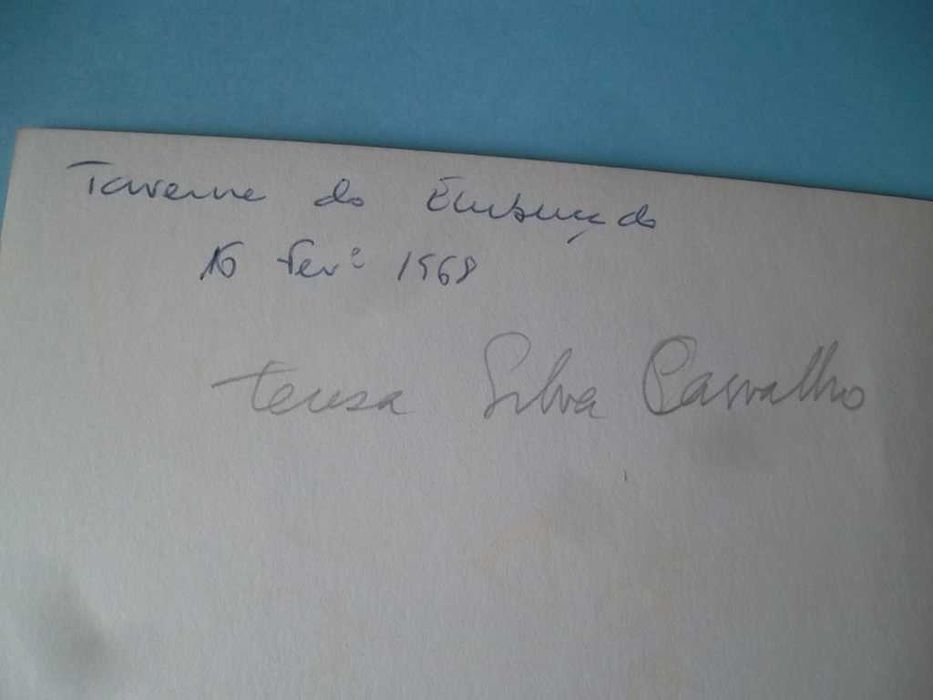 Taverna do Embuçado
16 Fevº 1968
teresa Silva Carvalho